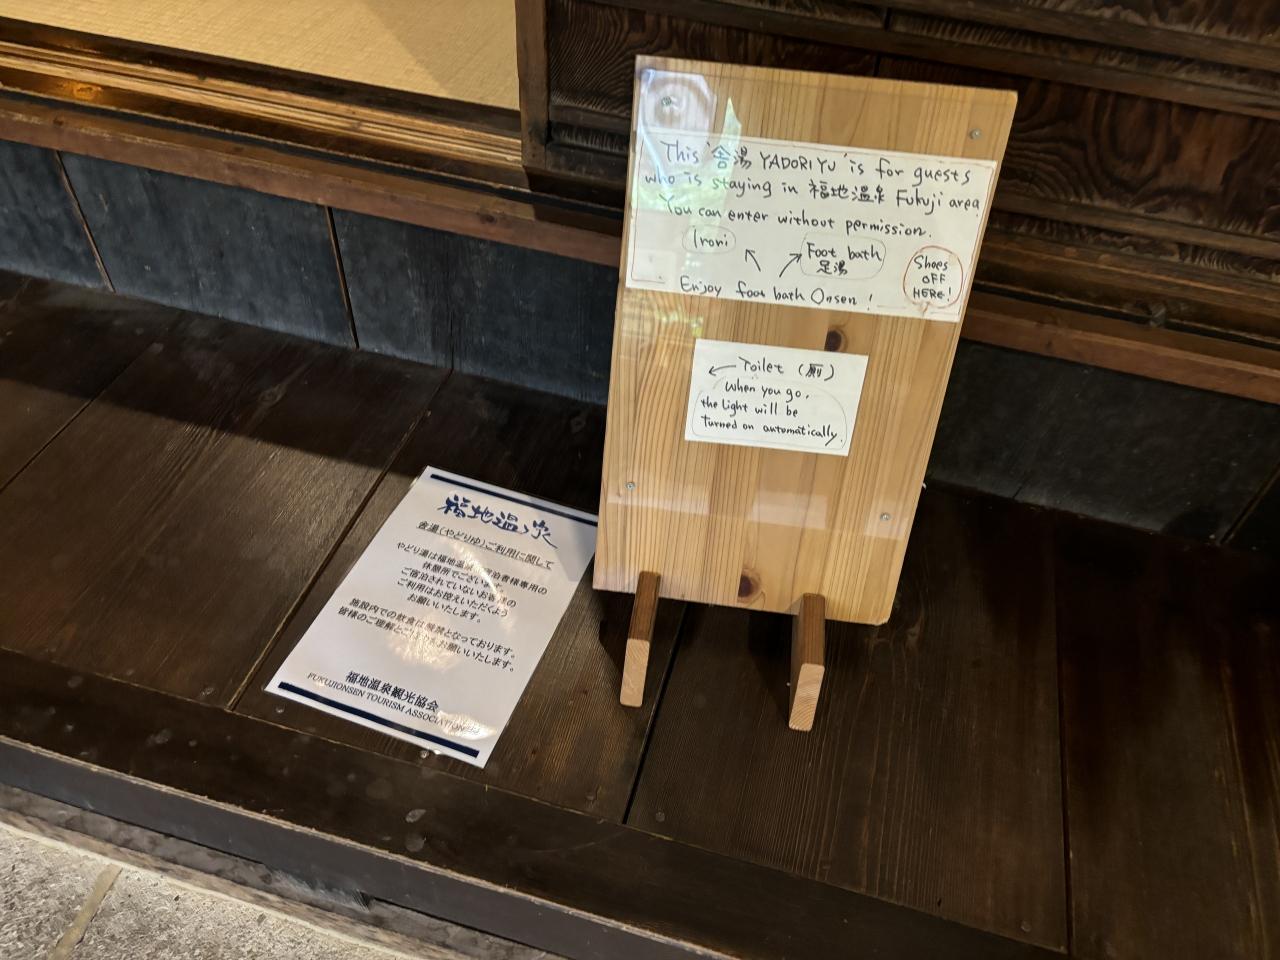 This '舎湯 YADORIYU' is for guests
who is staying in 福地温泉 Fukuji area.
You can enter without permission.
Irori
Foot bath
足湯
Shoes
OFF
HERE!
Enjoy foot bath Onsen!
← Toilet (厠)
When you go,
the light will be
turned on automatically.
福地温泉
舎湯（やどりゆ）ご利用に関して
やどり湯は福地温泉 宿泊者様専用の
休憩所でございます。
ご宿泊されていないお客様の
ご利用はお控えいただくよう
お願いいたします。
施設内での飲食は厳禁となっております。
皆様のご理解とご協力をお願いいたします。
福地温泉観光協会
FUKUJIONSEN TOURISM ASSOCIATION